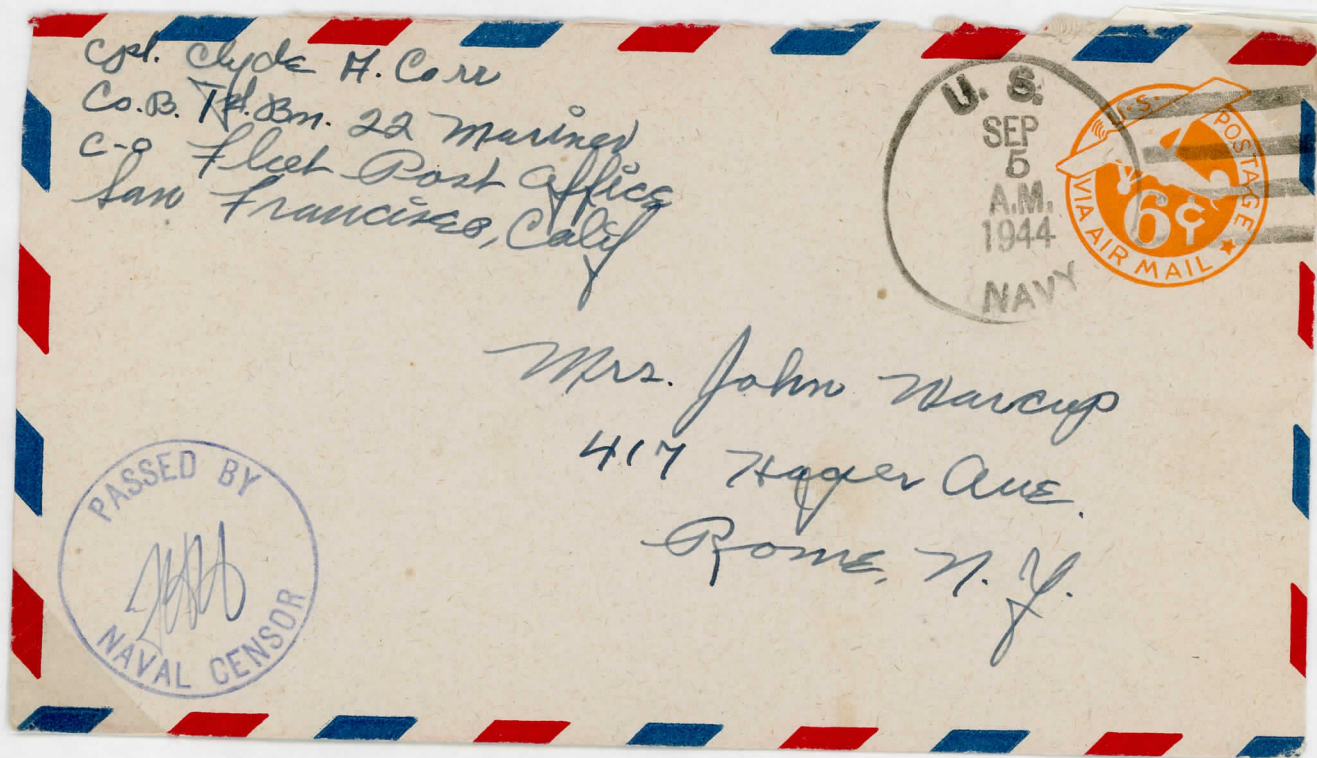 Cpl. Clyde H. Carr
Co. B. Tk. Bn. 22 Marines
c-o Fleet Post Office
San Francisco, Calif
U. S.
SEP
5
A.M.
1944
NAVY
U.S. POSTAGE
6¢
VIA AIR MAIL
Mrs. John Warcup
417 Ave.
Rome, N. Y.
PASSED BY
NAVAL CENSOR